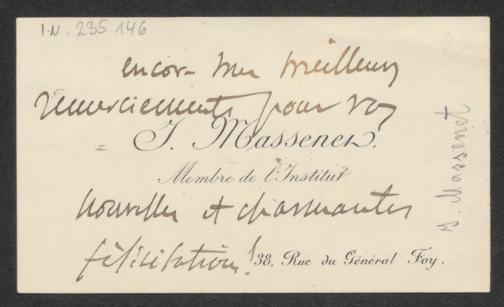 I.N. 235 146
encor- mes meilleurs
remerciements pour vos
J. Massenet.
Membre de l'Institut
nouvelles et charmantes
félicitations!
38, Rue du Général Foy.
J. Massenet